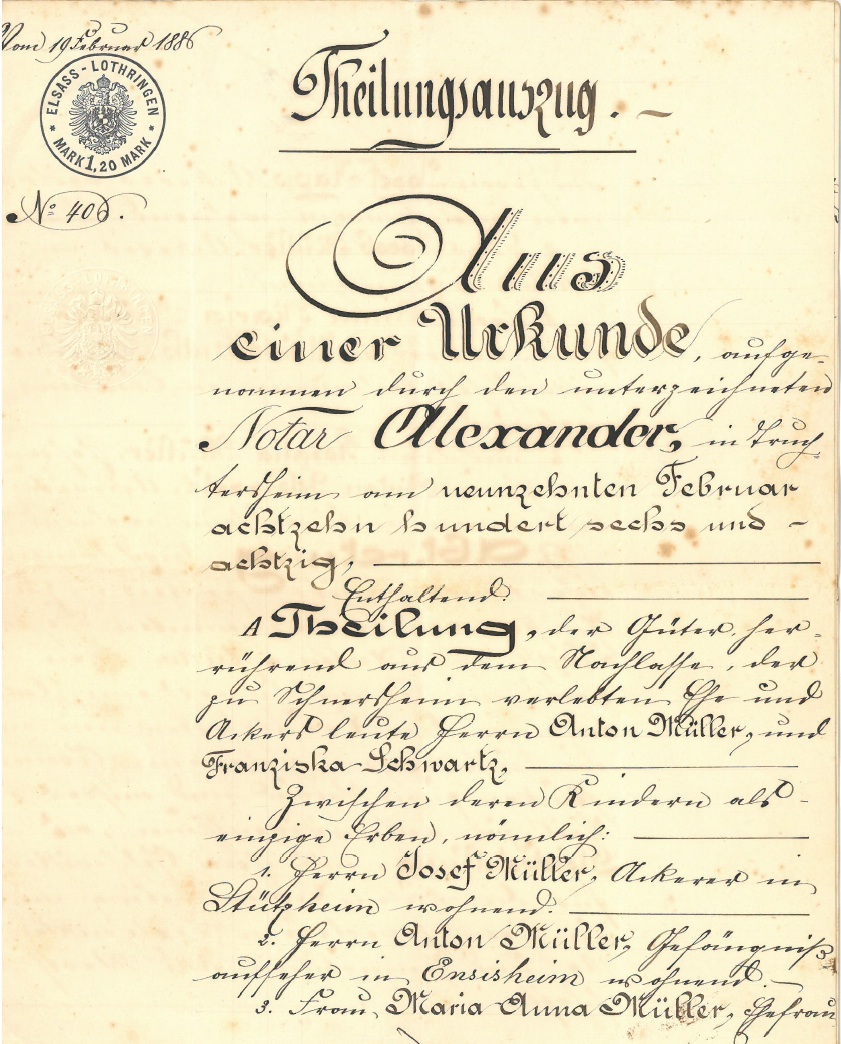 Vom 19 Februar 1886
ELSASS-LOTHRINGEN
* MARK 1,20 MARK *
Theilungsauszug.
No 406.
Aus
einer Urkunde, aufge-
nommen durch den unterzeichneten
Notar Alexander, in Truch-
tersheim am neunzehnten Februar
achtzehn hundert sechs und -
achtzig,
Enthaltend:
A Theilung, der Güter, her-
rührend aus dem Nachlasse, der
zu Schnersheim verlebten Ehe und
Ackersleute Herrn Anton Müller, und
Franziska Schwartz,
Zwischen deren Kindern als -
einzige Erben, nämlich:
1. Herrn Josef Müller, Ackerer in
Stützheim wohnend.
2. Herrn Anton Müller, Gefängniß-
aufseher in Ensisheim wohnend. -
3. Frau Maria Anna Müller, Ehefrau